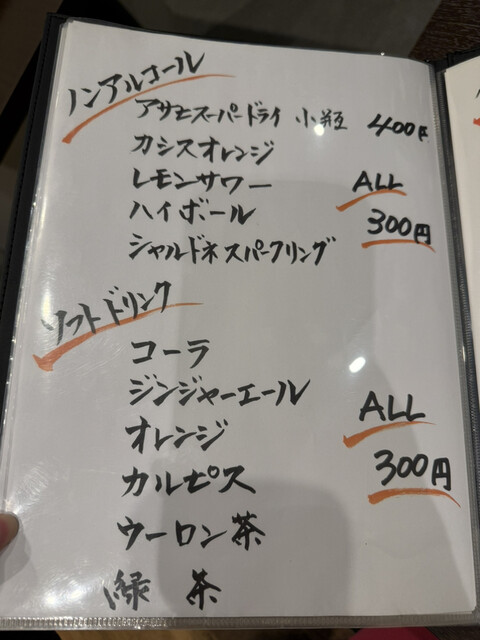 ノンアルコール
アサヒスーパードライ 小瓶 400円
カシスオレンジ
レモンサワー ALL
ハイボール 300円
シャルドネスパークリング
ソフトドリンク
コーラ
ジンジャーエール
オレンジ ALL
カルピス 300円
ウーロン茶
緑茶